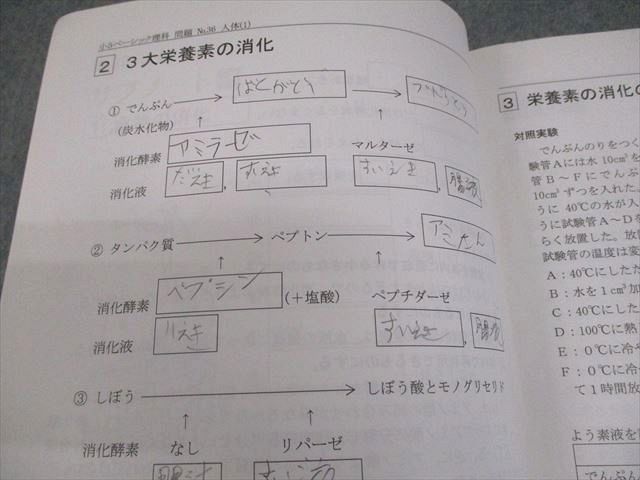 小5ベーシック理科 問題 No.36 人体(1)
2 3大栄養素の消化
① でんぷん → ばくがとう → ブドウとう
(炭水化物)
消化酵素 アミラーゼ マルターゼ
消化液 だえき, すいえき すいえき, 腸液
② タンパク質 → ペプトン → アミノさん
消化酵素 ペプシン (+塩酸) ペプチダーゼ
消化液 いえき すいえき, 腸液
③ しぼう → しぼう酸とモノグリセリド
消化酵素 なし リパーゼ
3 栄養素の消化の
対照実験
でんぷんのりをつく
験管Aには水10cm³を
管B～Fにでんぷ
10cm³ずつを入れた。
うに 40℃の水が入
うに試験管A～D
らく放置した。放
試験管の温度は変
A:40℃にした
B:水を1cm³加
C:40℃にした
D:100℃に熱
E:0℃に冷や
F:0℃に冷
て1時間放
よう素液を
でんぷん